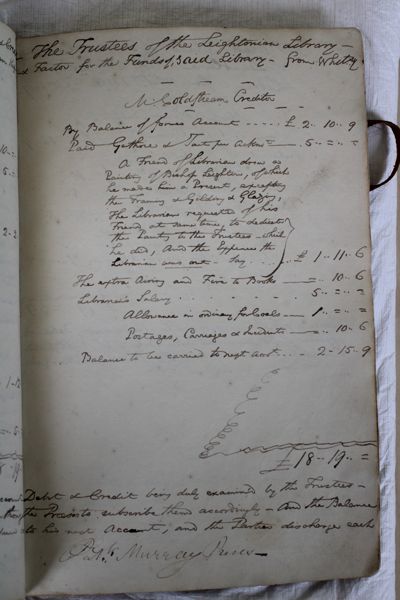 The Trustees of the Leightonian Library —
& Factor for the Funds of said Library — from Whitsy
Mr Coldstream Creditor
By Balance of former Account ---- £ 2.. 10.. 9
Paid & Tait per acknt 5.. = .. =
A Friend of Librarian drew a
Painting of Bishop Leighton, of which
he made him a Present, excepting
the Framing & Gilding & Glazing,
The Librarian requested of his
Friend, at same time, to dedicate
the Painting to the Trustees which
he did, And the Expences the
Librarian was out — Say .... £ 1.. 11.. 6
The extra Airing and Fire to Books —=.. 10.. 6
Librarians Salary . . . . . 5.. = .. =
Allowance in ordinary for Coals — 1.. = .. =
Postages, Carriages & Incidents —=.. 10.. 6
Balance to be carried to next acct. .. - 2 - 15.. 9
£ 18.. 19.. =
Debt & Credit being duly examined by the Trustees —
the Preses to subscribe them accordingly — And the Balance
his next Account, and the Parties discharge each
Patk. Murray Preses